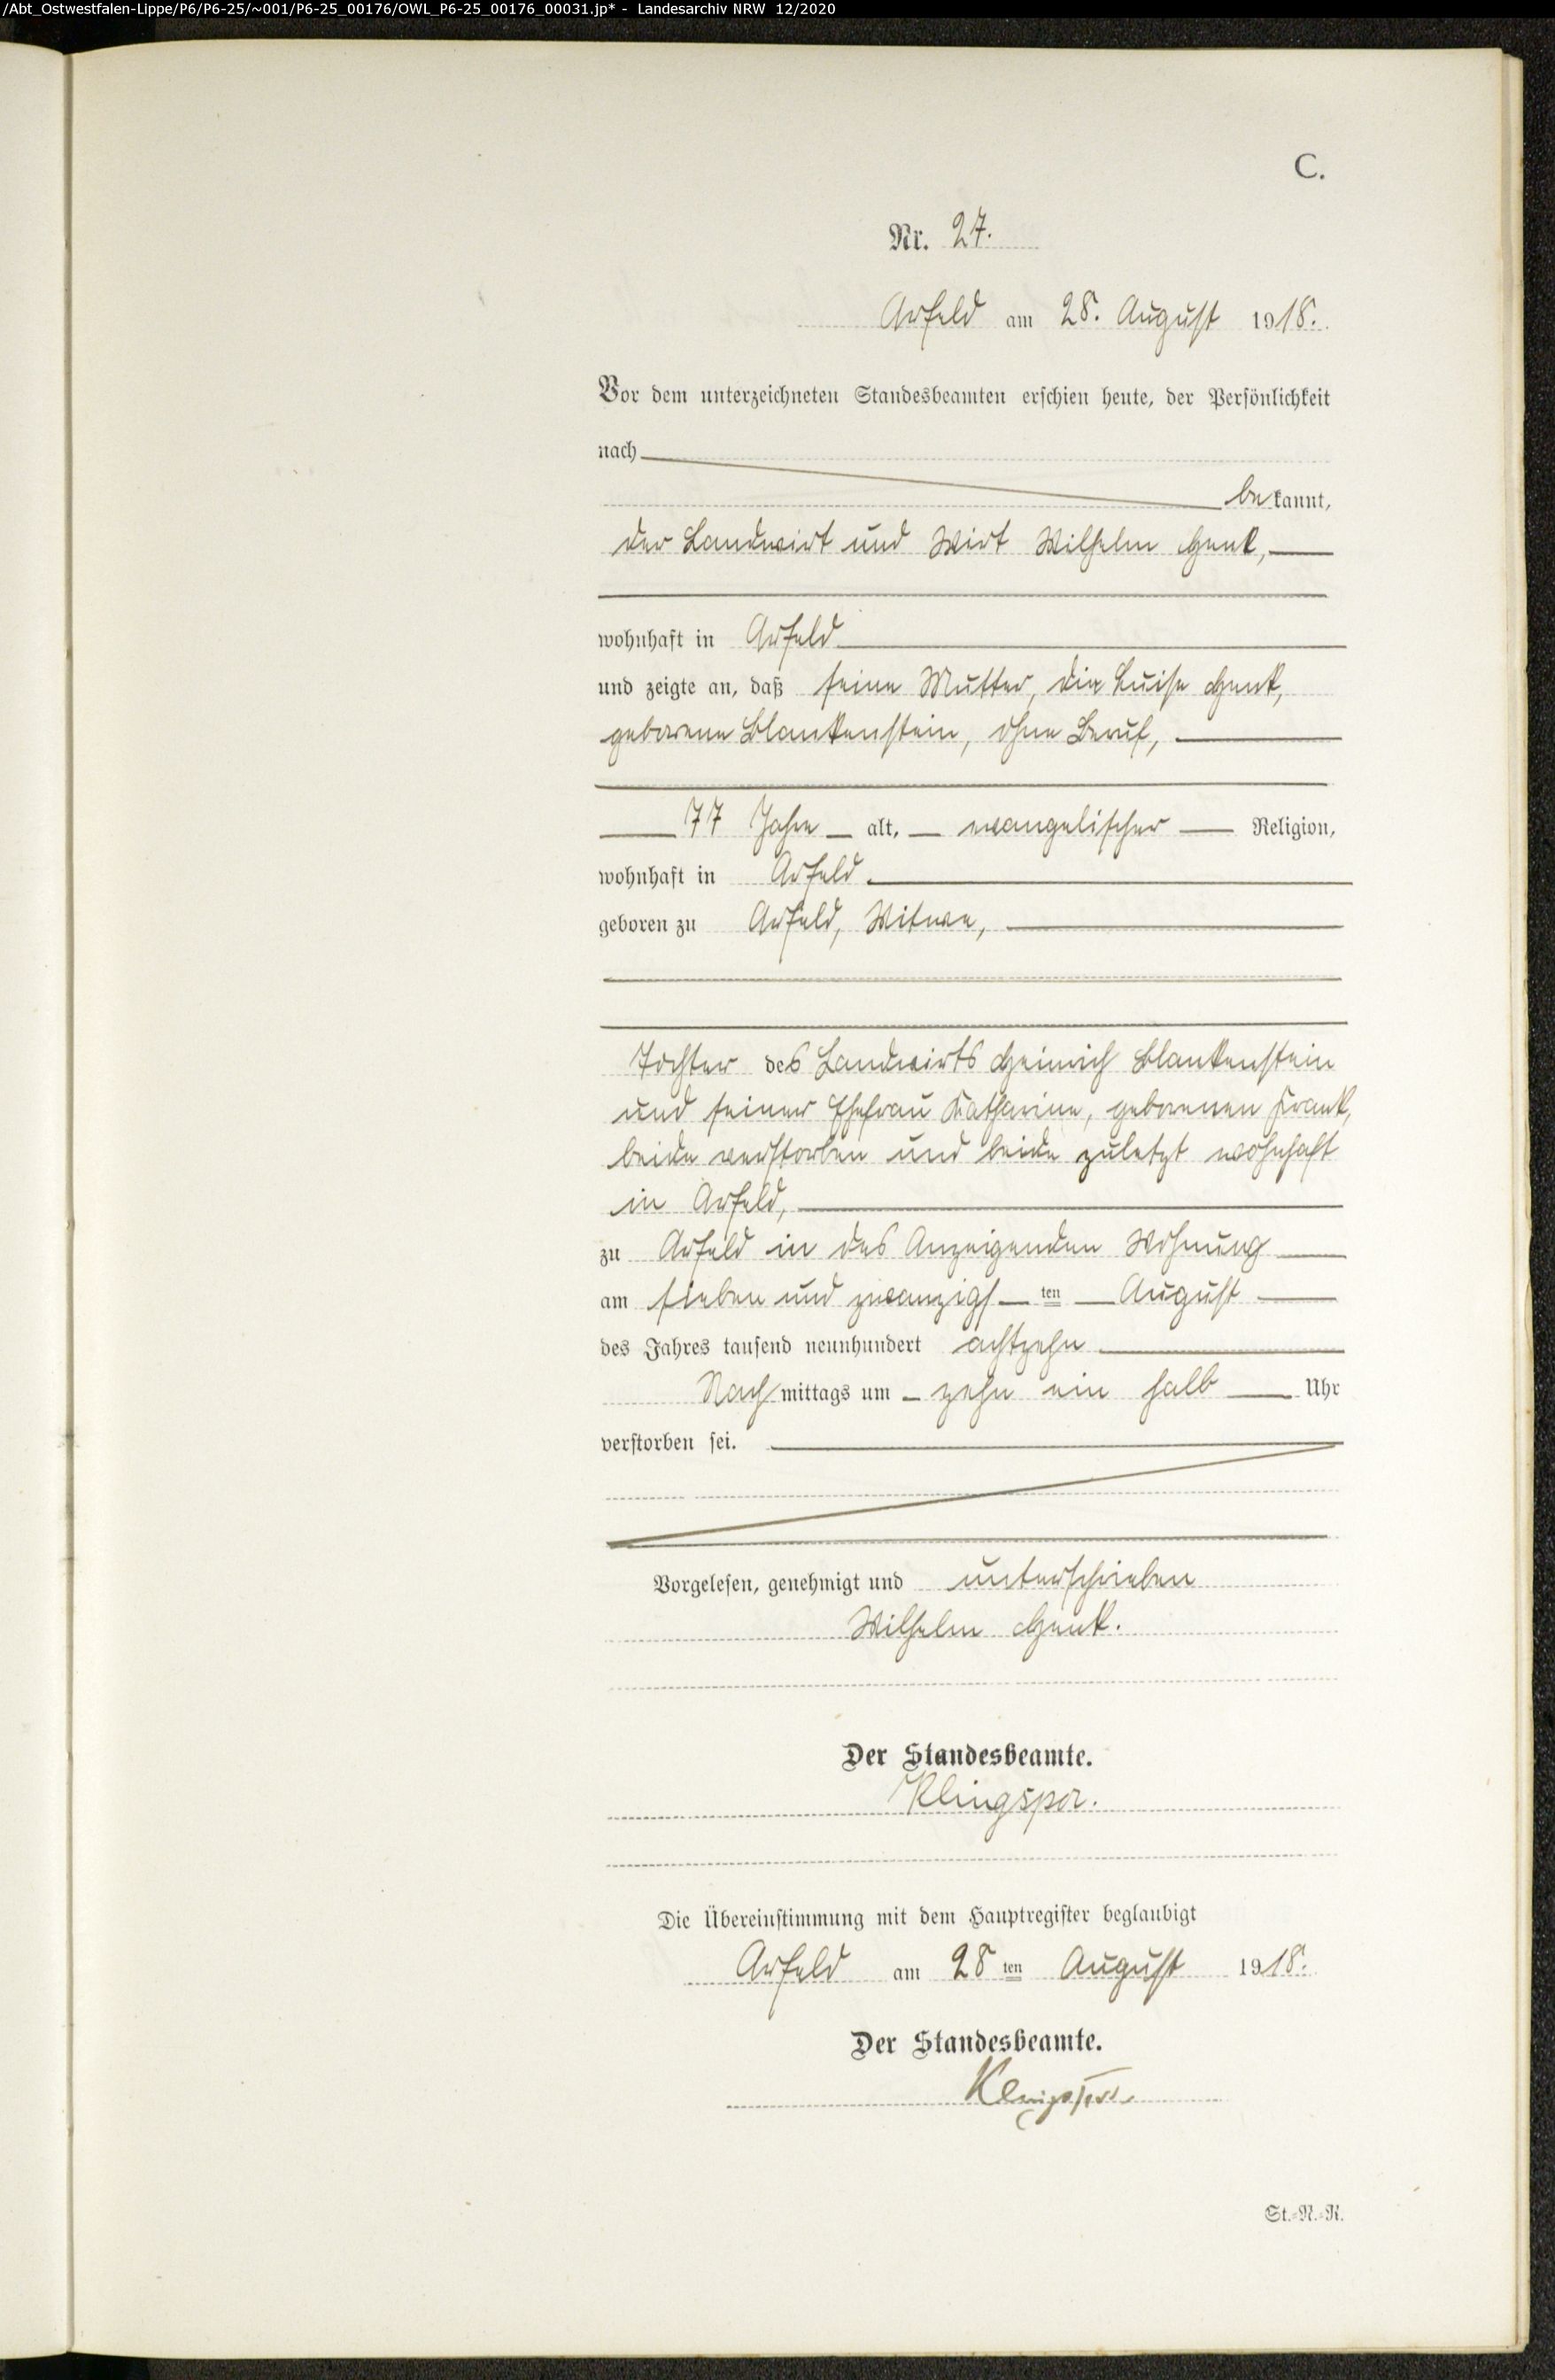 /Abt_Ostwestfalen-Lippe/P6/P6-25/~001/P6-25_00176/OWL_P6-25_00176_00031.jp* - Landesarchiv NRW 12/2020
C.
Nr. 27.
Arfeld am 28. August 1918.
Vor dem unterzeichneten Standesbeamten erschien heute, der Persönlichkeit
nach
bekannt,
der Landwirt und Wirt Wilhelm Henk,
wohnhaft in Arfeld
und zeigte an, daß seine Mutter, die Luise Henk,
geborene Blankenstein, ohne Beruf,
77 Jahre alt, evangelischer Religion,
wohnhaft in Arfeld
geboren zu Arfeld, Witwe,
Tochter des Landwirts Heinrich Blankenstein
und seiner Ehefrau Katharine, geborenen Frank,
beide verstorben und beide zuletzt wohnhaft
in Arfeld,
zu Arfeld in des Anzeigenden Wohnung
am sieben und zwanzigsten August
des Jahres tausend neunhundert achtzehn
Nachmittags um zehn ein halb Uhr
verstorben sei.
Vorgelesen, genehmigt und unterschrieben
Wilhelm Henk.
Der Standesbeamte.
Klingspor.
Die Übereinstimmung mit dem Hauptregister beglaubigt
Arfeld am 28ten August 1918.
Der Standesbeamte.
Klingspor
St.-N.-R.